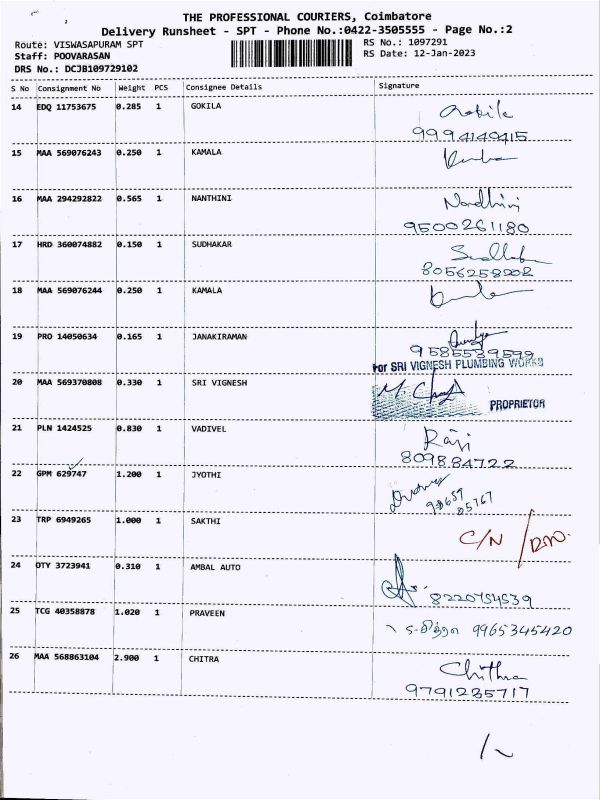 THE PROFESSIONAL COURIERS, Coimbatore
Delivery Runsheet - SPT - Phone No.:0422-3505555 - Page No.:2
Route: VISWASAPURAM SPT RS No.: 1097291
Staff: POOVARASAN RS Date: 12-Jan-2023
DRS No.: DCJB109729102
S No Consignment No Weight PCS Consignee Details Signature
14 EDQ 11753675 0.285 1 GOKILA
9994149415
15 MAA 569076243 0.250 1 KAMALA
16 MAA 294292822 0.565 1 NANTHINI Nandhini
9500261180
17 HRD 360074882 0.150 1 SUDHAKAR
8056258202
18 MAA 569076244 0.250 1 KAMALA
19 PRO 14050634 0.165 1 JANAKIRAMAN
9585539599
For SRI VIGNESH PLUMBING WORKS
20 MAA 569370808 0.330 1 SRI VIGNESH
PROPRIETOR
21 PLN 1424525 0.830 1 VADIVEL Raji
809884722
22 GPM 629747 1.200 1 JYOTHI
98657
85767
23 TRP 6949265 1.000 1 SAKTHI C/N
24 OTY 3723941 0.310 1 AMBAL AUTO
8220754539
25 TCG 40358878 1.020 1 PRAVEEN 9965345420
26 MAA 568863104 2.900 1 CHITRA Chithra
9791235717